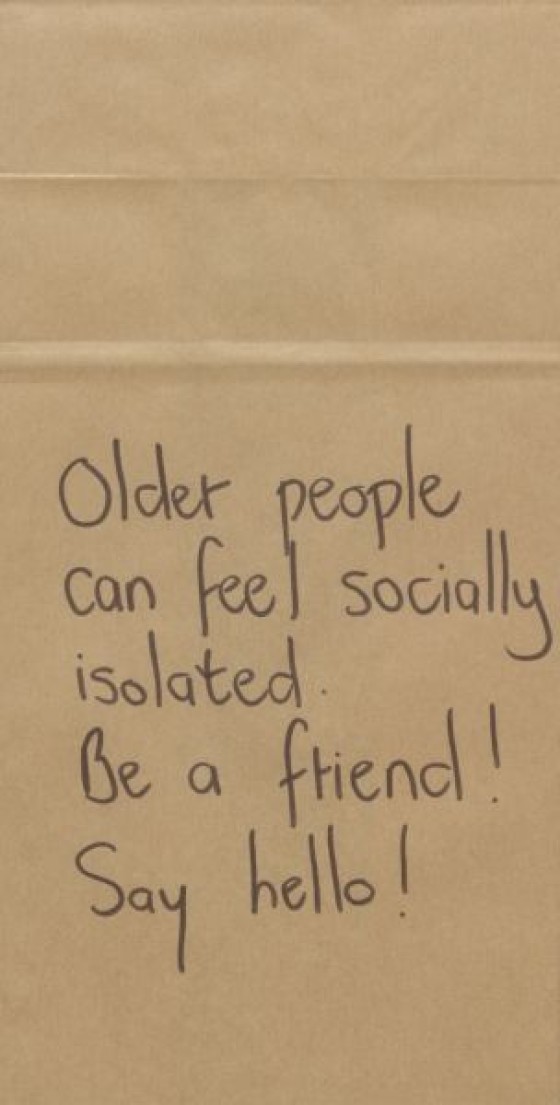 Older people
can feel socially
isolated.
Be a friend!
Say hello!